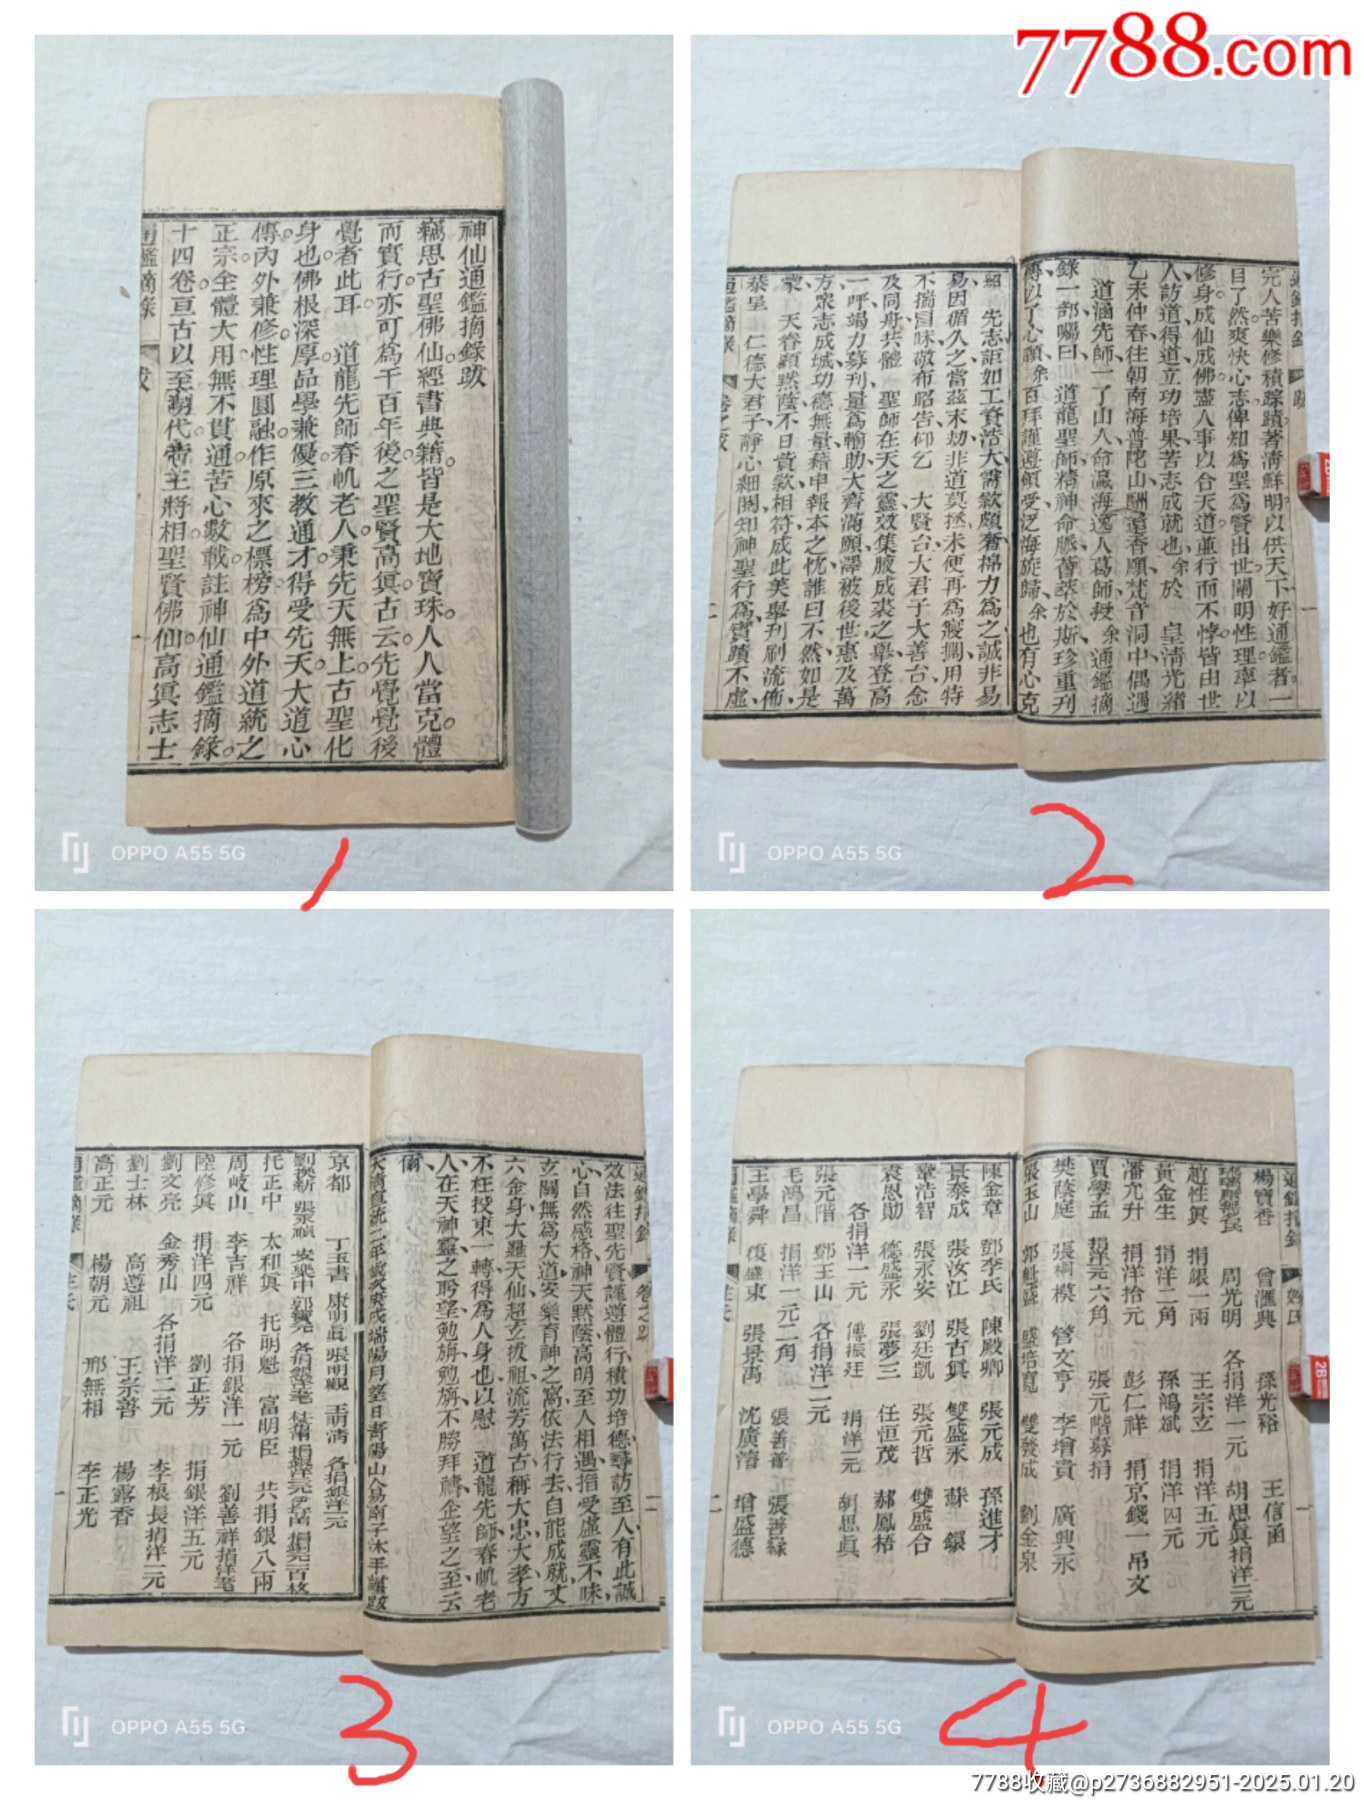 7788.com
神仙通鑑摘錄跋
竊思古聖佛仙經書典籍皆是大地寶珠人人當克體
而實行亦可爲千百年後之聖賢高眞古云先覺覺後
覺者此耳 道龍先師春帆老人秉先天無上古聖化
身也佛根深厚品學兼優三教通才得受先天大道心
傳內外兼修性理圓融作原來之標榜爲中外道統之
正宗全體大用無不貫通苦心數載註神仙通鑑摘錄
十四卷亘古以至 代帝王將相聖賢佛仙高眞志士
通鑑摘錄 跋 一
OPPO A55 5G
1
通鑑摘錄 跋 一
完人苦樂修積踪蹟著清鮮明以供天下好通鑑者一
目了然爽快心志俾知爲聖爲賢出世闡明性理率以
修身成仙成佛盡人事以合天道並行而不悖皆由世
人訪道得道立功培果苦志成就也余於 皇清光緒
乙未仲春往朝南海普陀山酬還香願梵音洞中偶遇
道涵先師一了山人命瀛海逸人葛師授余通鑑摘
錄一部囑曰 道龍聖師精神命脈薈萃於斯珍重刊
傳以了心願余百拜謹遵領受泛海旋歸余也有心克
紹 先志詎如工資浩大需欵頗奢棉力爲之誠非易
易因循久之當茲末劫非道莫拯未便再爲寢擱用特
不揣冒昧敬布昭告仰乞 大賢台大君子大善台念
及同舟共體 聖師在天之靈效集腋成裘之舉登高
一呼竭力募刊量爲輸助大齊滿願澤被後世惠及萬
方衆志成城功德無量藉申報本之忱誰曰不然如是
蒙 天眷顧黙蔭不日貲欵相符成此美舉刊刷流佈
恭呈 仁德大君子靜心細閱知神聖行爲實蹟不虛
通鑑摘錄 卷之跋 二
OPPO A55 5G
2
通鑑摘錄 卷之跋 二
效法往聖先賢謹遵體行積功培德尋訪至人有此誠
心自然感格神天黙蔭高明至人相遇指受虛靈不昧
玄關無爲大道安樂育神之窩依法行去自能成就丈
六金身大羅天仙超玄拔祖流芳萬古稱大忠大孝方
不枉投東一轉得爲人身也以慰 道龍先師春帆老
人在天神靈之聆望勉旃勉旃不勝拜禱企望之至云
爾
京都
托正中 太和眞 托明魁 富明臣 共捐銀八兩
周岐山 李吉祥 各捐銀洋一元 劉善祥捐洋
陸修眞 捐洋四元 劉正芳 捐銀洋五元
劉文亮 金秀山 各捐洋二元 李根長捐洋一元
劉士林 高遵祖 王宗善 楊露香
高正元 楊朝元 邢無相 李正光
通鑑摘錄 一
OPPO A55 5G
3
通鑑摘錄 姓氏 一
楊寶香 曾滙興 孫光裕 王信函
周光明 各捐洋一元 胡思眞捐洋三元
趙性眞 捐銀一兩 王宗立 捐洋五元
黃金生 捐洋二角 孫鴻斌 捐洋四元
潘亢升 捐洋拾元 彭仁祥 捐京錢一吊文
賈學孟 捐洋 元六角 張元階募捐
樊蔭庭 張桐模 管文亨 李增貴 廣興永
張玉山 郭魁盛 盛培寬 雙發成 劉金泉
陳金章 鄧李氏 陳殿卿 張元成 孫進才
景泰成 張汝江 張古眞 雙盛永 蘇
韋洁智 張永安 劉廷凱 張元哲 雙盛合
袁恩勛 德盛永 張夢三 任恒茂 郝鳳梧
各捐洋一元 傅振廷 捐洋一元 胡思眞
張元階 鄧玉山 各捐洋二元
毛鴻昌 捐洋一元二角 張善善 張善緣
王學舜 張景禹 沈廣濬 增盛德
通鑑摘錄 姓氏 二
OPPO A55 5G
4
7788收藏@p2736882951-2025.01.20